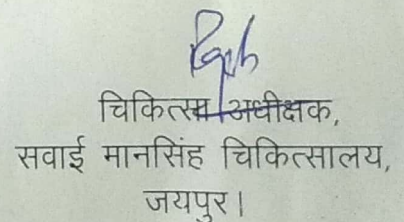 चिकित्सा अधीक्षक,
सवाई मानसिंह चिकित्सालय,
जयपुर।